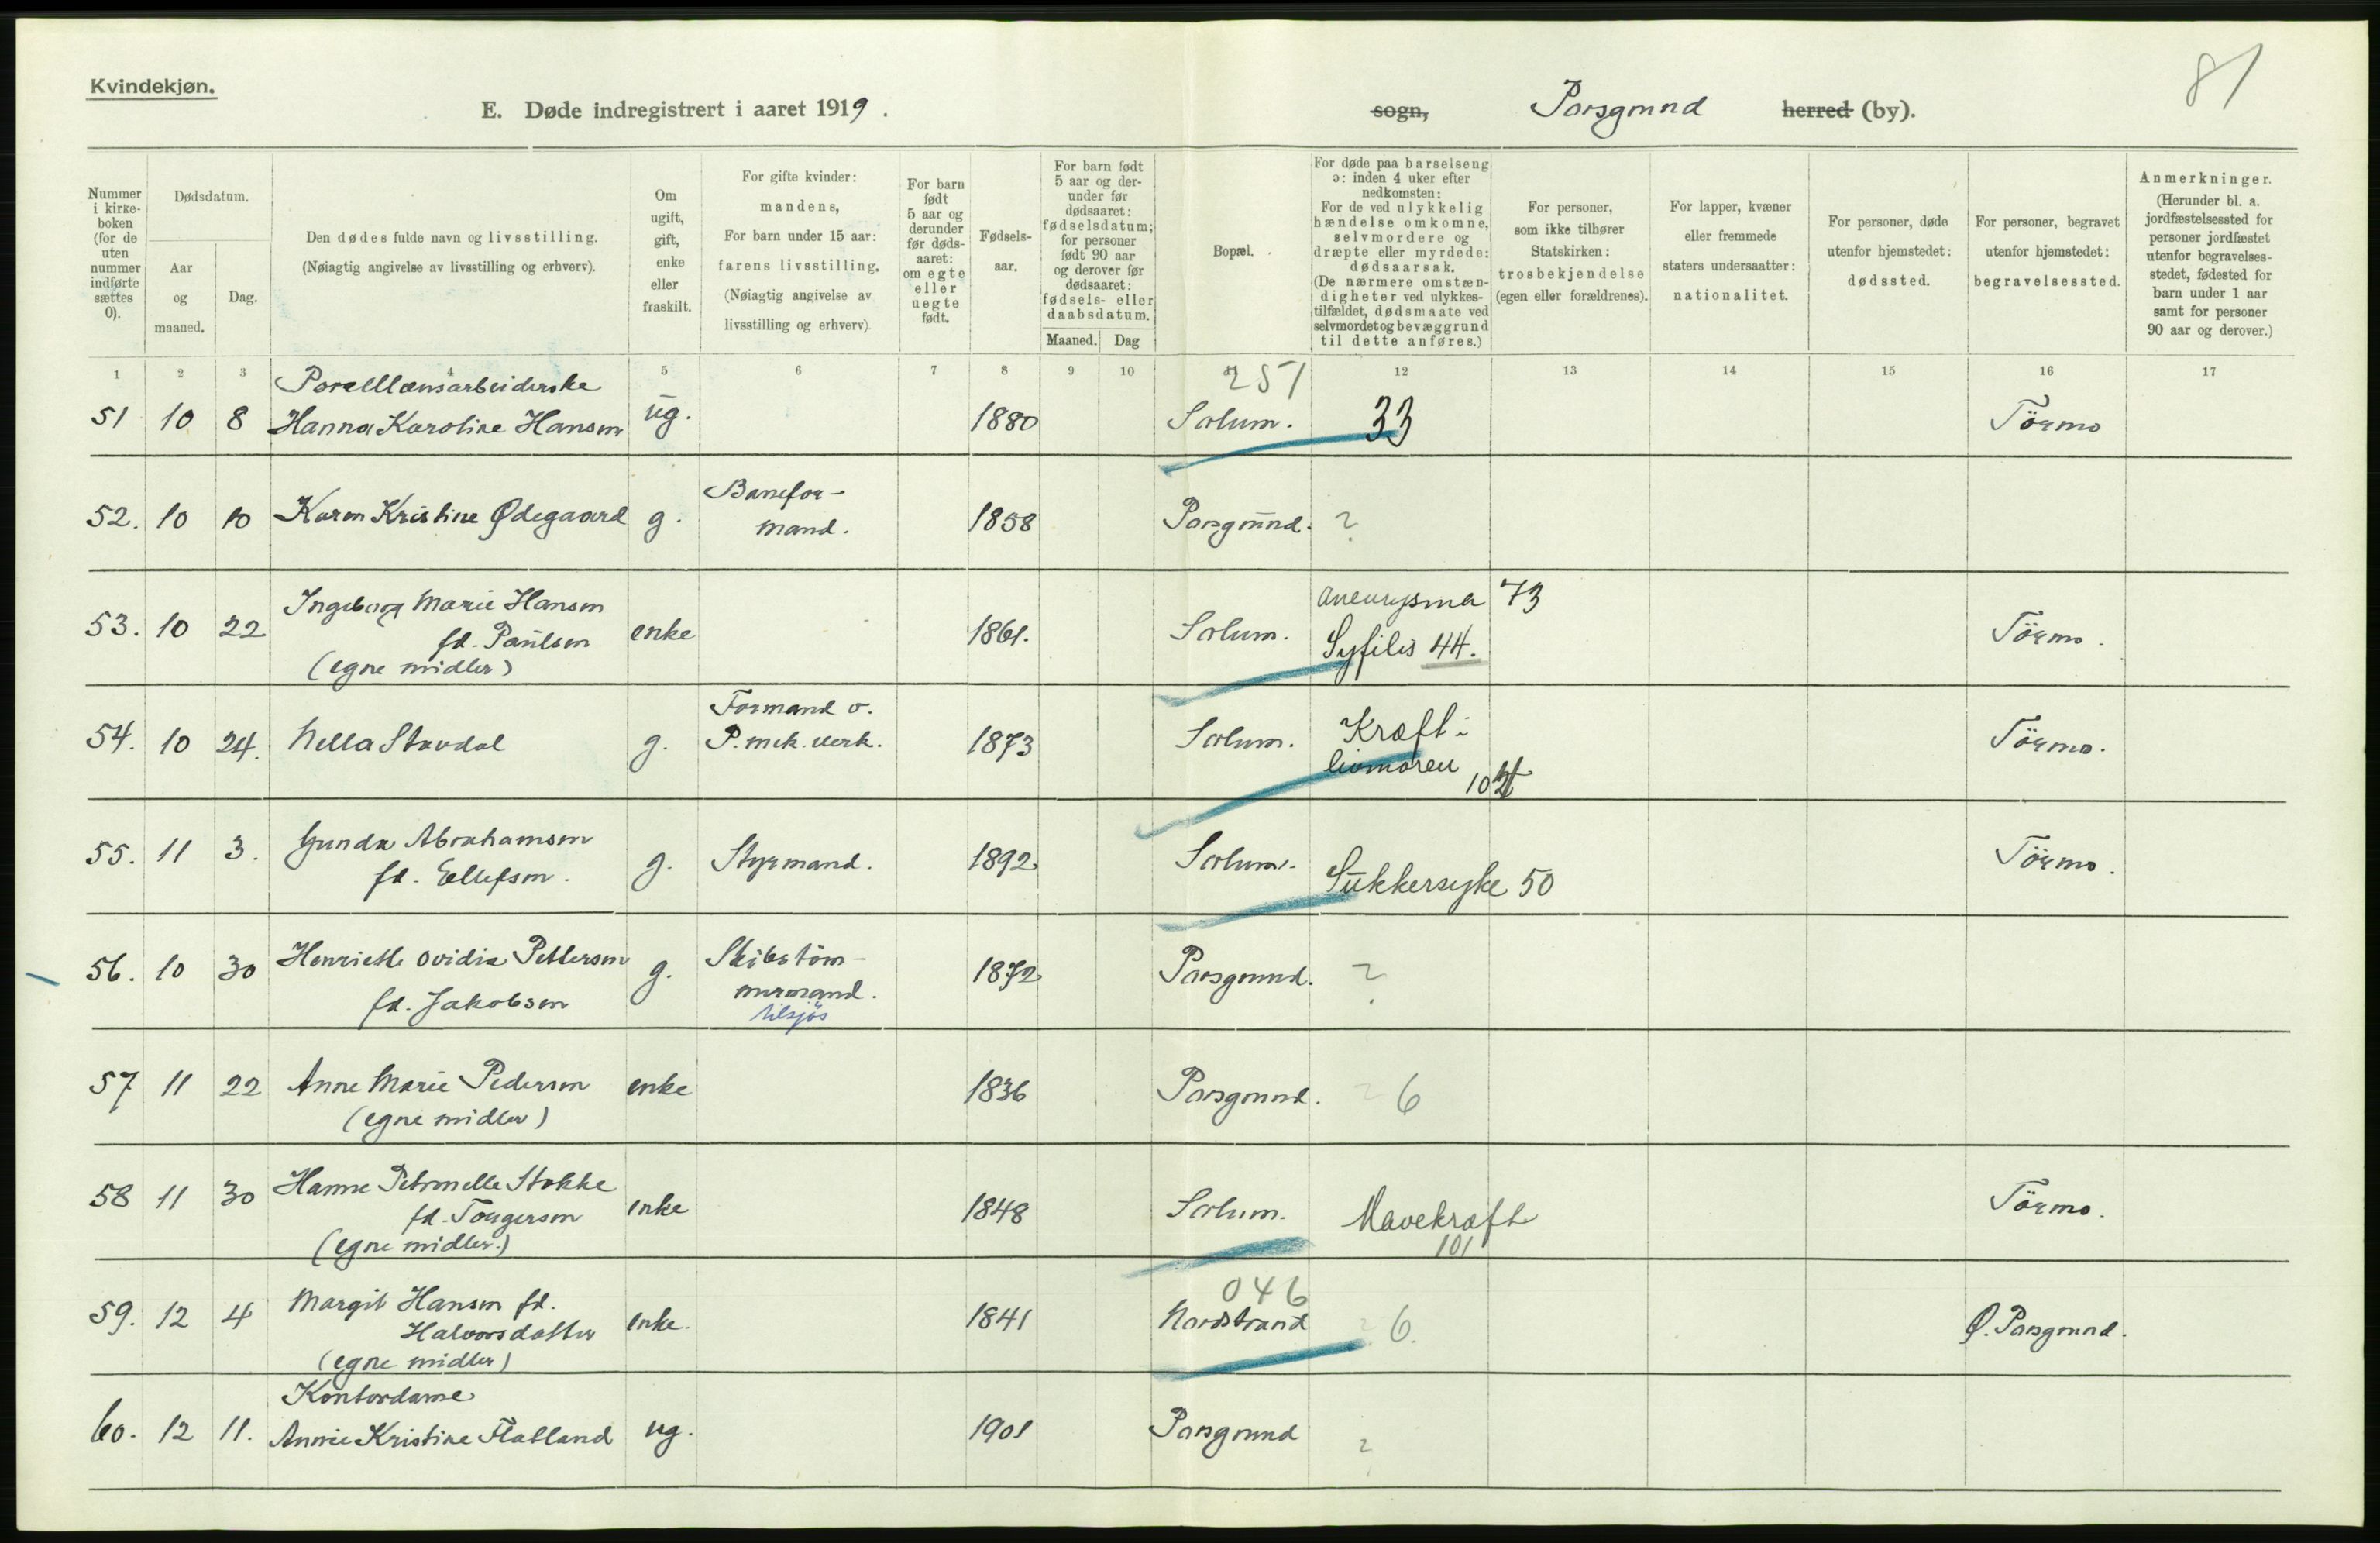 Kvindekjøn.
81
E. Døde indregistrert i aaret 1919. sogn, Porsgrund herred (by).
Nummer i kirke-boken (for de uten nummer indførte sættes 0).
Dødsdatum.
Aar og maaned.
Dag.
Den dødes fulde navn og livsstilling.
(Nøiagtig angivelse av livsstilling og erhverv).
Om ugift, gift, enke eller fraskilt.
For gifte kvinder: mandens,
For barn under 15 aar: farens livsstilling.
(Nøiagtig angivelse av livsstilling og erhverv).
For barn født 5 aar og derunder før døds-aaret: om egte eller uegte født.
Fødsels-aar.
For barn født 5 aar og der-under før dødsaaret: fødselsdatum; for personer født 90 aar og derover før dødsaaret: fødsels- eller daabsdatum.
Maaned. Dag
Bopæl.
For døde paa barselseng ɔ: inden 4 uker efter nedkomsten:
For de ved ulykkelig hændelse omkomne, selvmordere og dræpte eller myrdede: dødsaarsak.
(De nærmere omstæn-digheter ved ulykkes-tilfældet, dødsmaate ved selvmordet og bevæggrund til dette anføres.)
For personer, som ikke tilhører Statskirken: trosbekjendelse (egen eller forældrenes).
For lapper, kvæner eller fremmede staters undersaatter: nationalitet.
For personer, døde utenfor hjemstedet: dødssted.
For personer, begravet utenfor hjemstedet: begravelsessted.
Anmerkninger.
(Herunder bl. a. jordfæstelsessted for personer jordfæstet utenfor begravelses-stedet, fødested for barn under 1 aar samt for personer 90 aar og derover.)
1 2 3 4 5 6 7 8 9 10 11 12 13 14 15 16 17
Porcellænsarbeiderske 251
51 10 8 Hanna Karoline Hansen ug. 1880 Solum. 33 Törmo
Banefor-
52. 10 10 Karen Kristine Ødegaard g. mand. 1858 Porsgrund. ?
Ingeborg Marie Hansen aneurysma 73
53. 10 22 fd. Paulsen enke 1861. Solum. Syfilis 44. Törmo.
(egne midler)
Formand v. Kræft i
54. 10 24. Nella Stavdal g. P. mek. verk. 1873 Solum. livmoren Törmo.
102
Gunda Abrahamsen
55. 11 3. fd. Ellefsen. g. Styrmand. 1892 Solum. Sukkersyke 50 Törmo.
Henriette Ovidia Pettersen Skibstöm-
56. 10 30 fd. Jakobsen g. mermand. 1872 Porsgrund. ?
tilsjös
57 11 22 Anne Marie Pedersen enke 1836 Porsgrund. ? 6
(egne midler)
Hanne Petronelle Stokke
58 11 30 fd. Torgersen enke 1848 Solum. Mavekræft Törmo.
(egne midler.) 101
Margit Hansen fd. 046
59. 12 4 Halvorsdatter enke. 1841 Nordstrand ? 6. Ø. Porsgrund.
(egne midler)
Kontordame
60. 12 11. Annie Kristine Flatland ug. 1901 Porsgrund ?